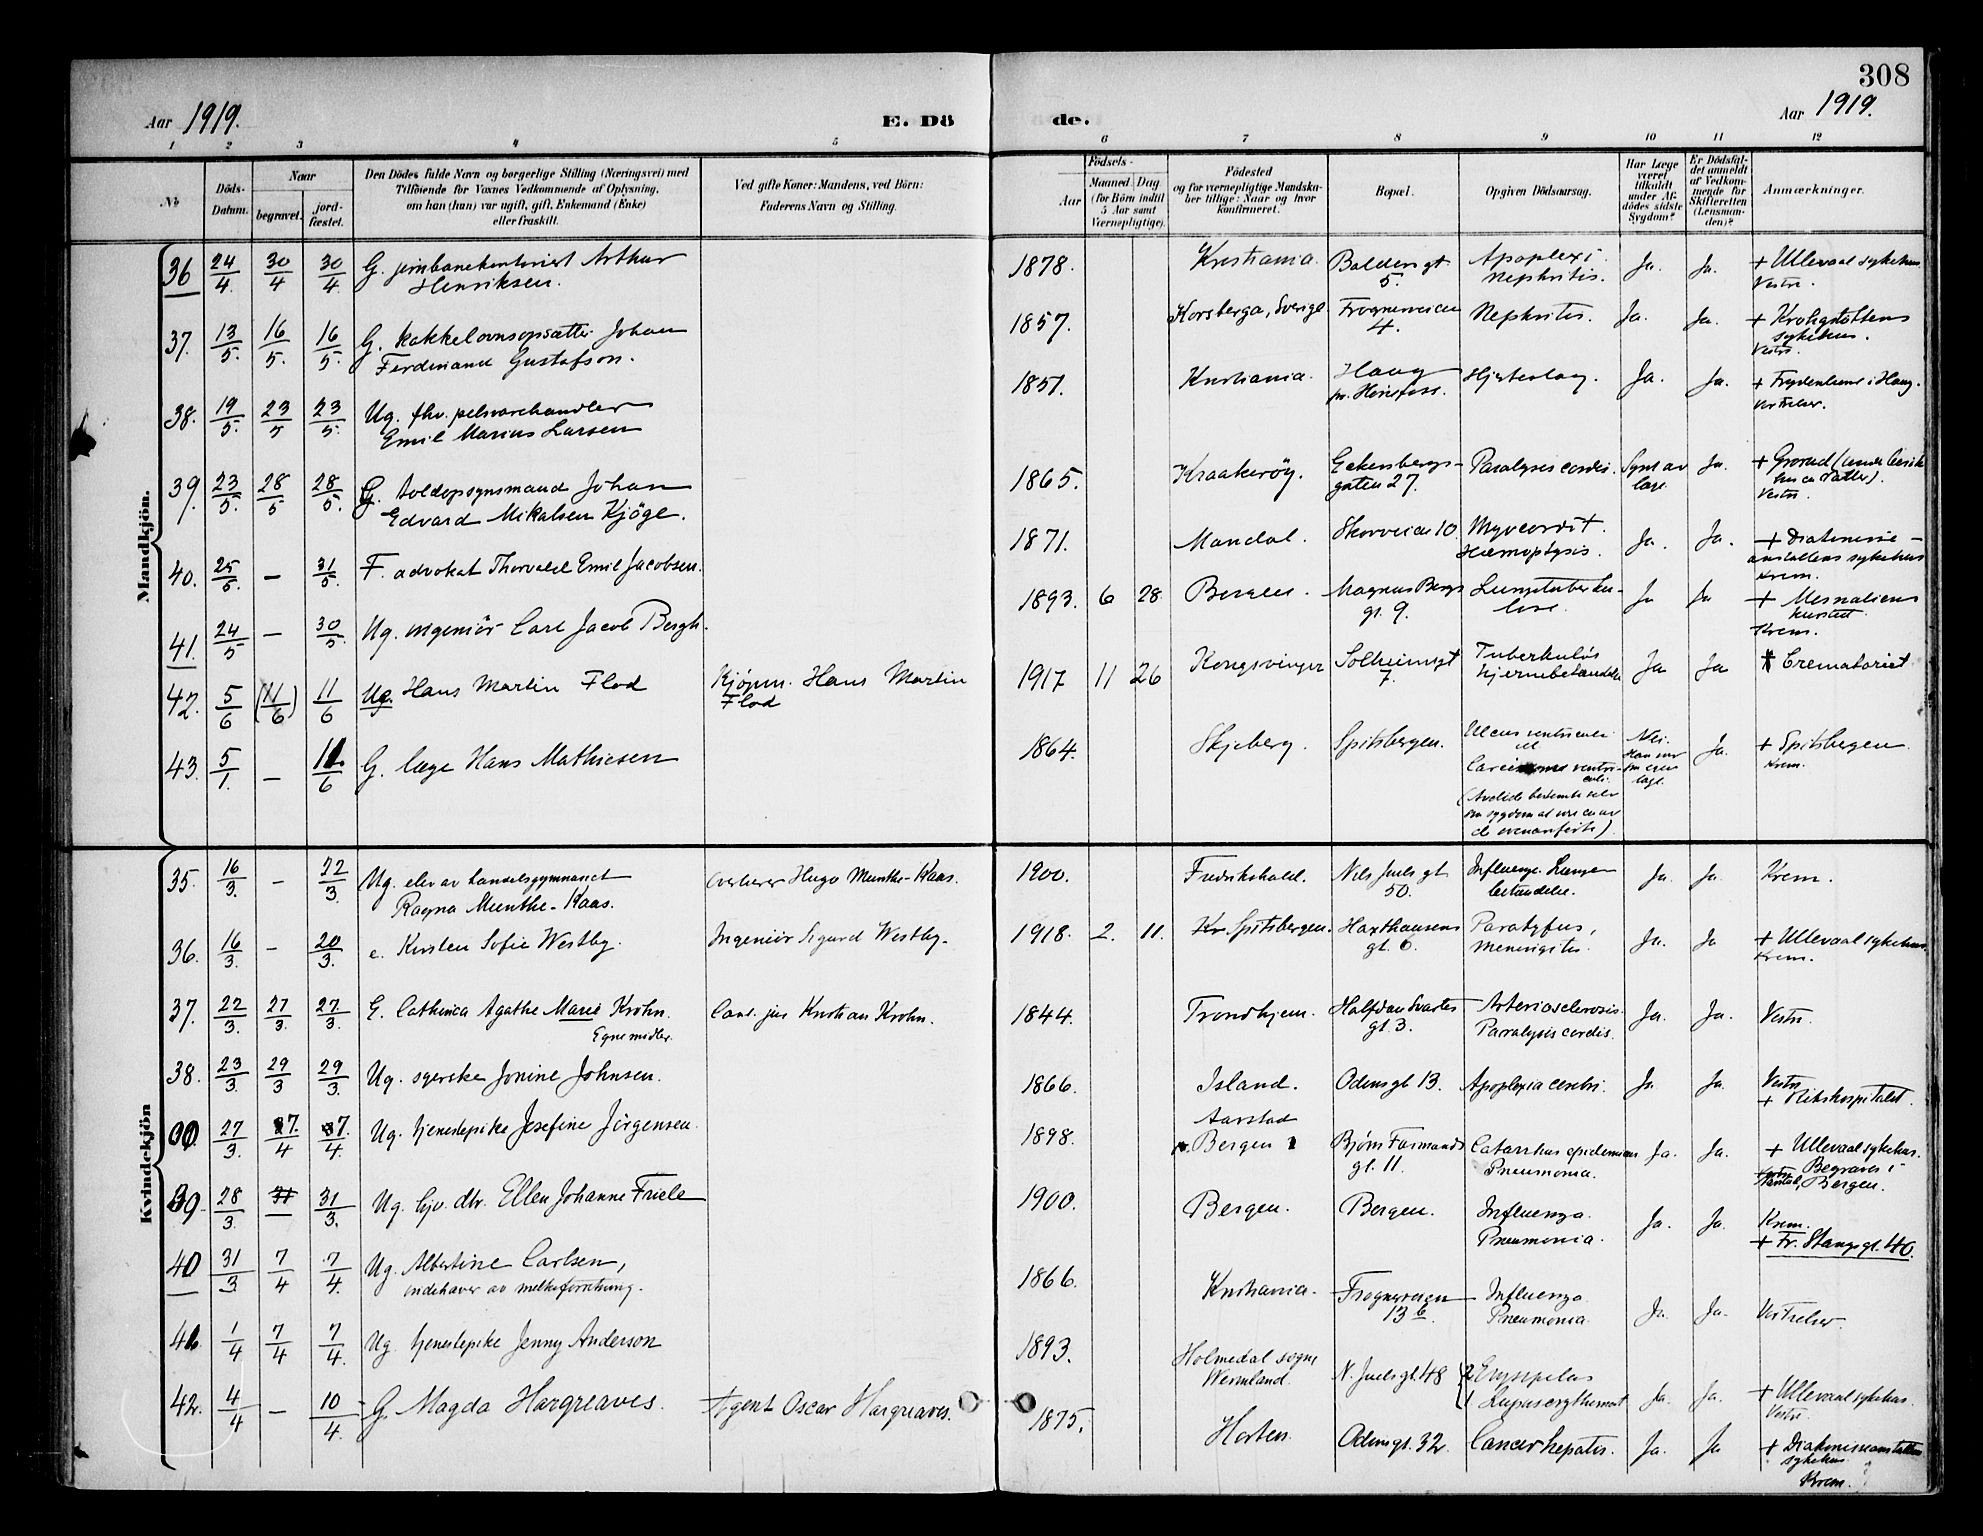 308
Aar 1919.
E. Dö
de.
Aar 1919.
1 2 3 4 5 6 7 8 9 10 11 12
No
Döds-
Datum.
Naar
begravet.
jord-
fæstet.
Den Dödes fulde Navn og borgerlige Stilling (Næringsvei) med
Tilföiende for Voxnes Vedkommende af Oplysning,
om han (hun) var ugift, gift, Enkemand (Enke)
eller fraskilt.
Ved gifte Koner: Mandens, ved Börn:
Faderens Navn og Stilling.
Födsels-
Aar
Maaned
Dag
(for Börn indtil
5 Aar samt
Værnepligtige).
Födested
og for værnepligtige Mandska-
ber tillige: Naar og hvor
konfirmeret.
Bopæl.
Opgiven Dödsaarsag.
Har Læge
været
tilkaldt
under Af-
dödes sidste
Sygdom?
Er Dödsfal-
det anmeldt
af Vedkom-
mende for
Skifteretten
(Lensman-
den)?
Anmærkninger.
Mandkjön.
36 24/4. 30/4 30/4. G. jernbanekontorist Arthur
Henriksen.
1878. Kristiania. Baldersgt. 5. Apoplexi Nephritis. Ja. Ja. + Ullevaal sykehus.
Vestre.
37. 13/5. 16/5. 16/5. G. kakkelovnsopsætter Johan
Ferdinand Gustafson.
1857. Korsberga, Sverige Frognerveien 4. Nephritis. Ja. Ja. + Krohgstøttens
sykehus.
Vestre.
38. 19/5. 23/5 23/5. Ug. fhv. pelsvarehandler
Emil Marius Larsen
1851. Kristiania. Haag pr. Hønefoss. Hjerteslag. Ja. Ja. + Frydenlund i Haag.
Vor Frelser.
39. 23/5. 28/5 28/5. G. toldopsynsmand Johan
Edvard Mikalsen Kjöge.
1865. Kraakeröy. Eckersbergs-
gaten 27. Paralysis cordis. Synt av
læge. Ja. + Grorud
Vestre.
40. 25/5. — 31/5. F. advokat Thorvald Emil Jacobsen.
1871. Mandal. Skovveien 10. Myocardit.
Hæmoptysis. Ja. Ja. + Diakonisse-
anstaltens sykehus
Krem.
41. 24/5 — 30/5. Ug. ingeniör Carl Jacob Bergh.
1893. 6 28 Bergen. Magnus Bergs
gt. 9. Lungetuberku-
lose. Ja Ja + Mesnaliens
kursted.
Krem.
42. 5/6 (11/6) 11/6 Ug. Hans Martin Flod Kjøpm. Hans Martin
Flod
1917 11 26 Kongsvinger Solheimsgt
7. Tuberkuløs
hjernebetændelse Ja Ja + Crematoriet
43. 5/1. — 11/6 G. læge Hans Mathiesen
1864. Skjeberg. Spitsbergen. Ulcus ventriculi
el.
Carcinoma ventri-
culi.
Nei.
Han var
sin egen
læge. Ja. + Spitsbergen
Krem.
Kvindekjön
35. 16/3. — 22/3. Ug. elev av handelsgymnasiet
Ragna Munthe-Kaas. Overlærer Hugo Munthe-Kaas.
1900. Fredrikshald. Nils Juels gt
50. Influenza. Lunge-
betændelse. Ja. Ja. Krem.
36. 16/3. — 20/3. e. Kirsten Sofie Westby. Ingeniör Sigurd Westby.
1918. 2. 11. Kr Spitsbergen. Haxthausens
gt. 6. Paratyfus,
meningitis. Ja. Ja + Ullevaal sykehus.
Krem.
37. 22/3. 27/3. 27/3. G. Cathinca Agathe Marie Krohn.
Egne midler. Cand. jur Kristian Krohn.
1844. Trondhjem. Halfdan Svartes
gt. 3. Arteriosclerosis.
Paralysis cordis. Ja. Ja. Vestre
38. 23/3. 29/3 29/3. Ug. syerske Jonine Johnsen.
1866. Island. Odinsgt. 13. Apoplexia cerebri. Ja. Ja. Vestre
+ Rikshospitalet.
27/3. 7./4 7./4. Ug. tjenestepike Josefine Jörgensen.
1898. Aarstad
Bergen Bjørn Farmands
gt. 11. Catarrhus epidemicus
Pneumonia. Ja. Ja. + Ullevaal sykehus.
Begraves i
Bergen.
39. 28/3. 31 31/3. Ug. hjv. dtr. Ellen Johanne Friele
1900. Bergen. Bergen. Influenza.
Pneumonia. Ja. Ja. Krem.
+ Fr. Stangs gt. 40.
40 31/3. 7/4 7/4. Ug. Albertine Carlsen,
indehaver av melkeforretning.
1866. Kristiania. Frognerveien
13 b. Influenza
Pneumonia. Ja. Ja. Vor Frelser.
41. 1/4 7/4 7/4. Ug. tjenestepike Jenny Anderson
1893. Holmedal sogne
Wermland. N. Juels gt. 48 2 Erysipelas
1 Lupus erythemat. Ja. Ja. + Ullevaal sykehus.
Vestre
42. 4/4 — 10/4. G. Magda Hargreaves. Agent Oscar Hargreaves.
1875. Horten. Odinsgt. 32. Cancer hepatis. Ja. Ja + Diakonisseanstaltens
sykehus.
Krem.